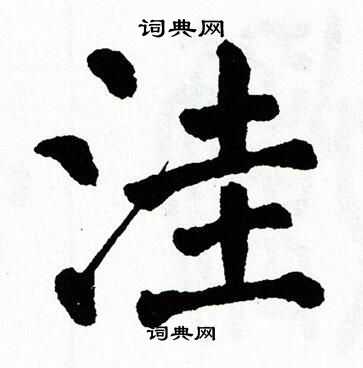 词典网
洼
词典网